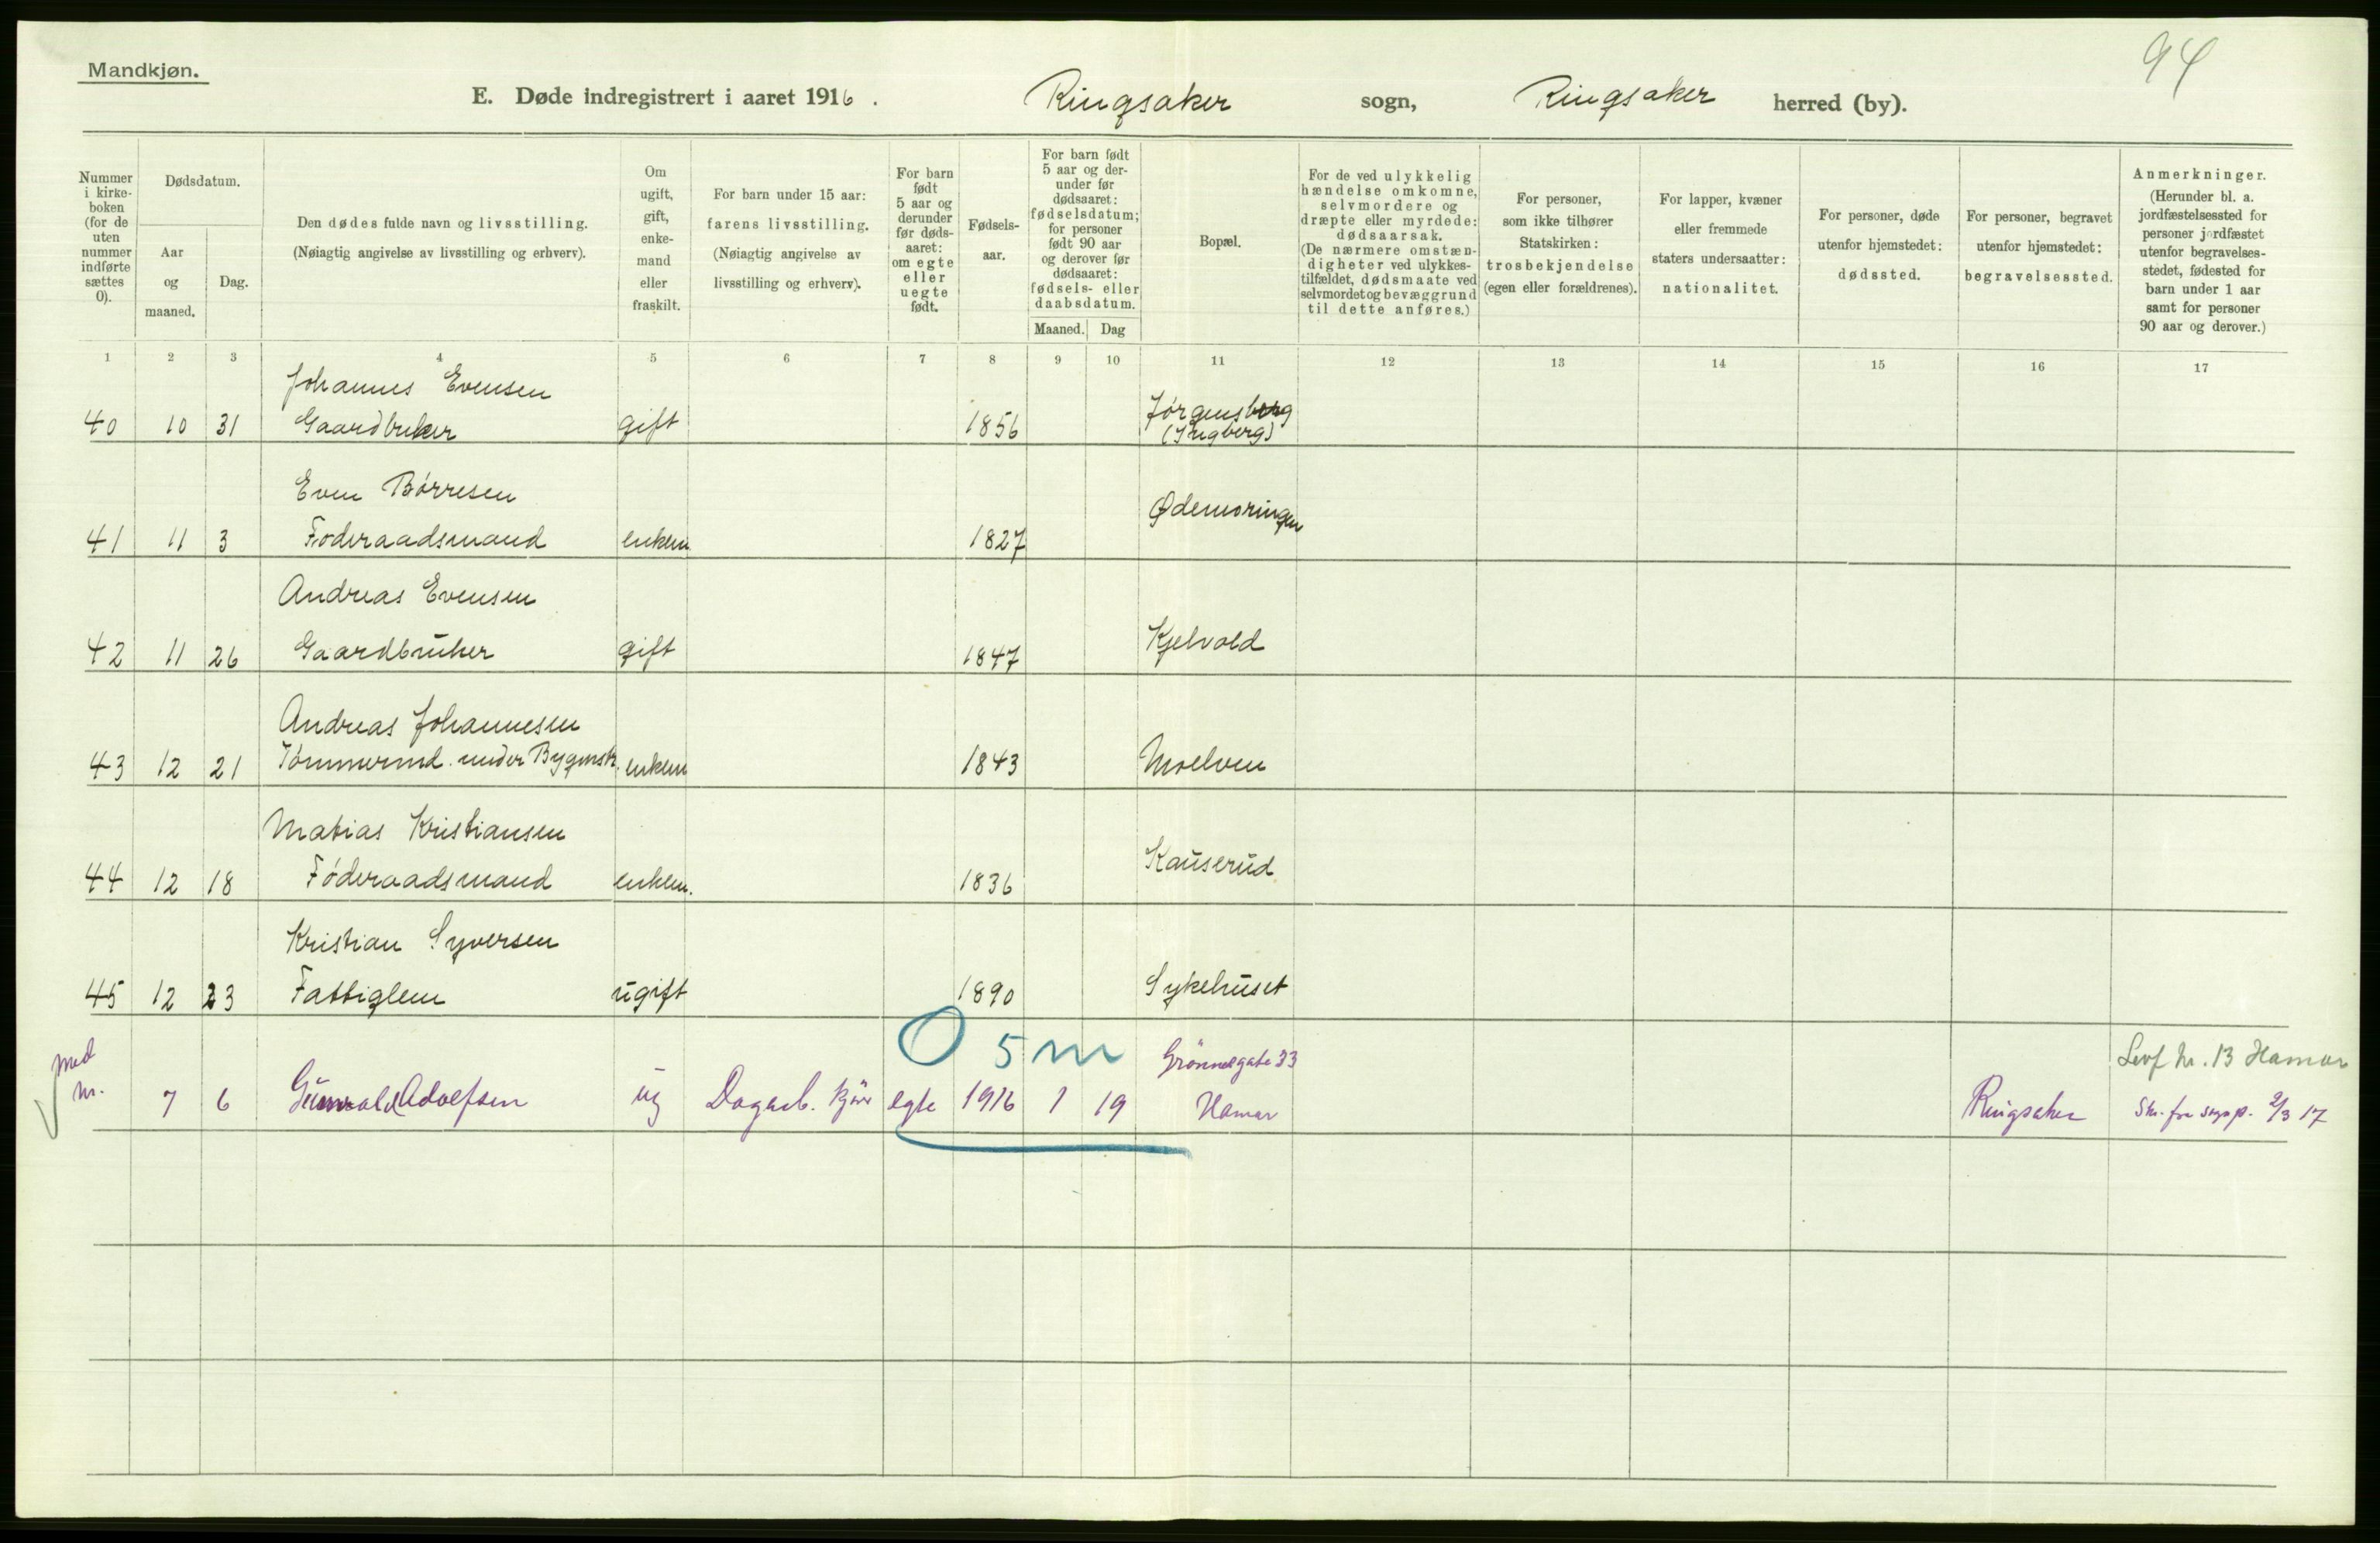 94
Mandkjøn.
E. Døde indregistrert i aaret 1916. Ringsaker sogn, Ringsaker herred (by).
Nummer i kirke- boken (for de uten nummer indførte sættes 0).
Dødsdatum.
Aar og maaned.
Dag.
Den dødes fulde navn og livsstilling. (Nøiagtig angivelse av livsstilling og erhverv).
Om ugift, gift, enke- mand eller fraskilt.
For barn under 15 aar: farens livsstilling. (Nøiagtig angivelse av livsstilling og erhverv).
For barn født 5 aar og derunder før døds- aaret: om egte eller uegte født.
Fødsels- aar.
For barn født 5 aar og der- under før dødsaaret: fødselsdatum; for personer født 90 aar og derover før dødsaaret: fødsels- eller daabsdatum.
Maaned. Dag
Bopæl.
For de ved ulykkelig hændelse omkomne, selvmordere og dræpte eller myrdede: dødsaarsak. (De nærmere omstæn- digheter ved ulykkes- tilfældet, dødsmaate ved selvmordet og bevæggrund til dette anføres.)
For personer, som ikke tilhører Statskirken: trosbekjendelse (egen eller forældrenes).
For lapper, kvæner eller fremmede staters undersaatter: nationalitet.
For personer, døde utenfor hjemstedet: dødssted.
For personer, begravet utenfor hjemstedet: begravelsessted.
Anmerkninger. (Herunder bl. a. jordfæstelsessted for personer jordfæstet utenfor begravelses- stedet, fødested for barn under 1 aar samt for personer 90 aar og derover.)
1 2 3 4 5 6 7 8 9 10 11 12 13 14 15 16 17
Johannes Evensen Jørgensberg
40 10 31 Gaardbruker gift 1856 (Ingberg)
Even Børresen Ødemoringen
41 11 3 Føderaadsmand enkem 1827
Andreas Evensen
42 11 26 Gaardbruker gift 1847 Kjelvold
Andreas Johannesen
43 12 21 Tømmermd. under Bygmstr. enkem 1843 Moelven
Matias Kristiansen
44 12 18 Føderaadsmand enkem. 1836 Kauserud
Kristian Syversen
45 12 23 Fattiglem ugift 1890 Sykehuset
O 5 m Grönnegate 33 nr. 13 Hamar
med nr. 7 6 Gunvald Adolfsen ug Dagarb. kjør egte 1916 1 19 Hamar Ringsaker Skr. fra sogp. 2/3 17